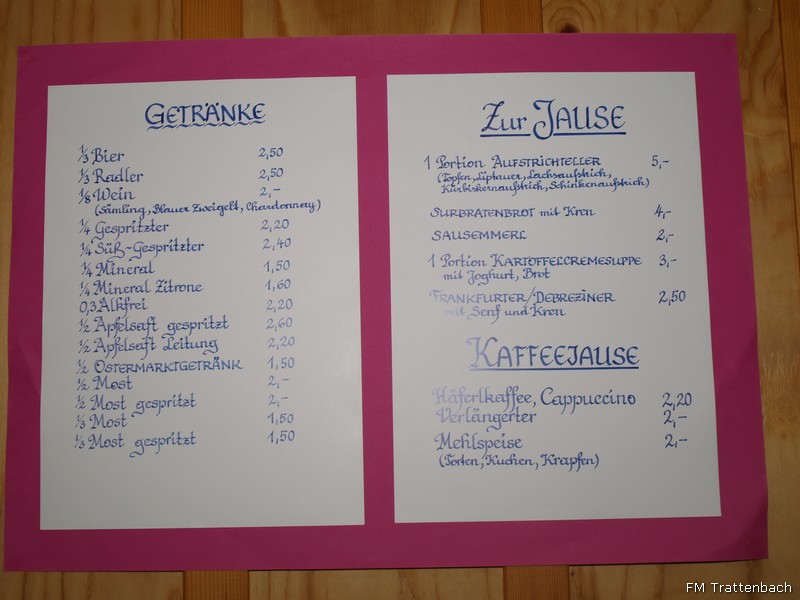 GETRÄNKE
1/3 Bier 2,50
1/3 Radler 2,50
1/8 Wein 2,-
(Sämling, Blauer Zweigelt, Chardonnay)
1/4 Gespritzter 2,20
1/4 Süß-Gespritzter 2,40
1/4 Mineral 1,50
1/4 Mineral Zitrone 1,60
0,3 Alkfrei 2,20
1/2 Apfelsaft gespritzt 2,60
1/2 Apfelsaft Leitung 2,20
1/2 OSTERMARKTGETRÄNK 1,50
1/2 Most 2,-
1/2 Most gespritzt 2,-
1/3 Most 1,50
1/3 Most gespritzt 1,50
Zur JAUSE
1 Portion AUFSTRICHTELLER 5,-
(Topfen, Liptauer, Lachsaufstrich,
Kürbiskernaufstrich, Schinkenaufstrich)
SURBRATENBROT mit Kren 4,-
SAUSEMMERL 2,-
1 Portion KARTOFFELCREMESUPPE 3,-
mit Joghurt, Brot
FRANKFURTER/DEBREZINER 2,50
mit Senf und Kren
KAFFEEJAUSE
Häferlkaffee, Cappuccino 2,20
Verlängerter 2,-
Mehlspeise 2,-
(Torten, Kuchen, Krapfen)
FM Trattenbach